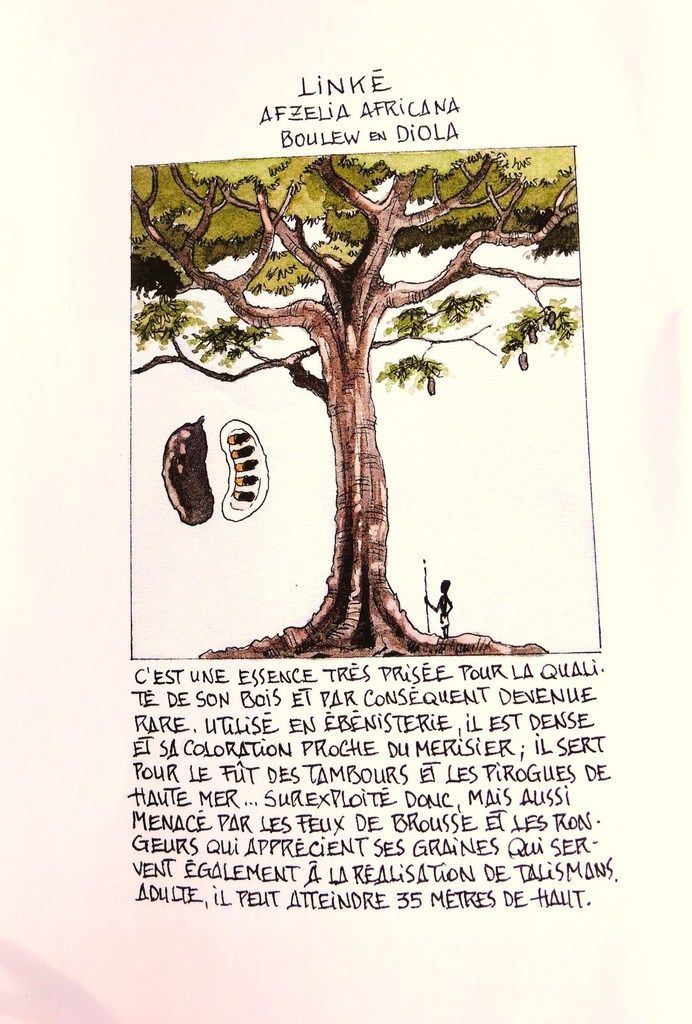 LINKÉ
AFZELIA AFRICANA
BOULEW EN DIOLA
C'EST UNE ESSENCE TRÈS PRISÉE POUR LA QUALI-
TÉ DE SON BOIS ET PAR CONSÉQUENT DEVENUE
RARE. UTILISÉ EN ÉBÉNISTERIE, IL EST DENSE
ET SA COLORATION PROCHE DU MERISIER ; IL SERT
POUR LE FÛT DES TAMBOURS ET LES PIROGUES DE
HAUTE MER... SUREXPLOITÉ DONC, MAIS AUSSI
MENACÉ PAR LES FEUX DE BROUSSE ET LES RON-
GEURS QUI APPRÉCIENT SES GRAINES QUI SER-
VENT ÉGALEMENT À LA RÉALISATION DE TALISMANS.
ADULTE, IL PEUT ATTEINDRE 35 MÈTRES DE HAUT.